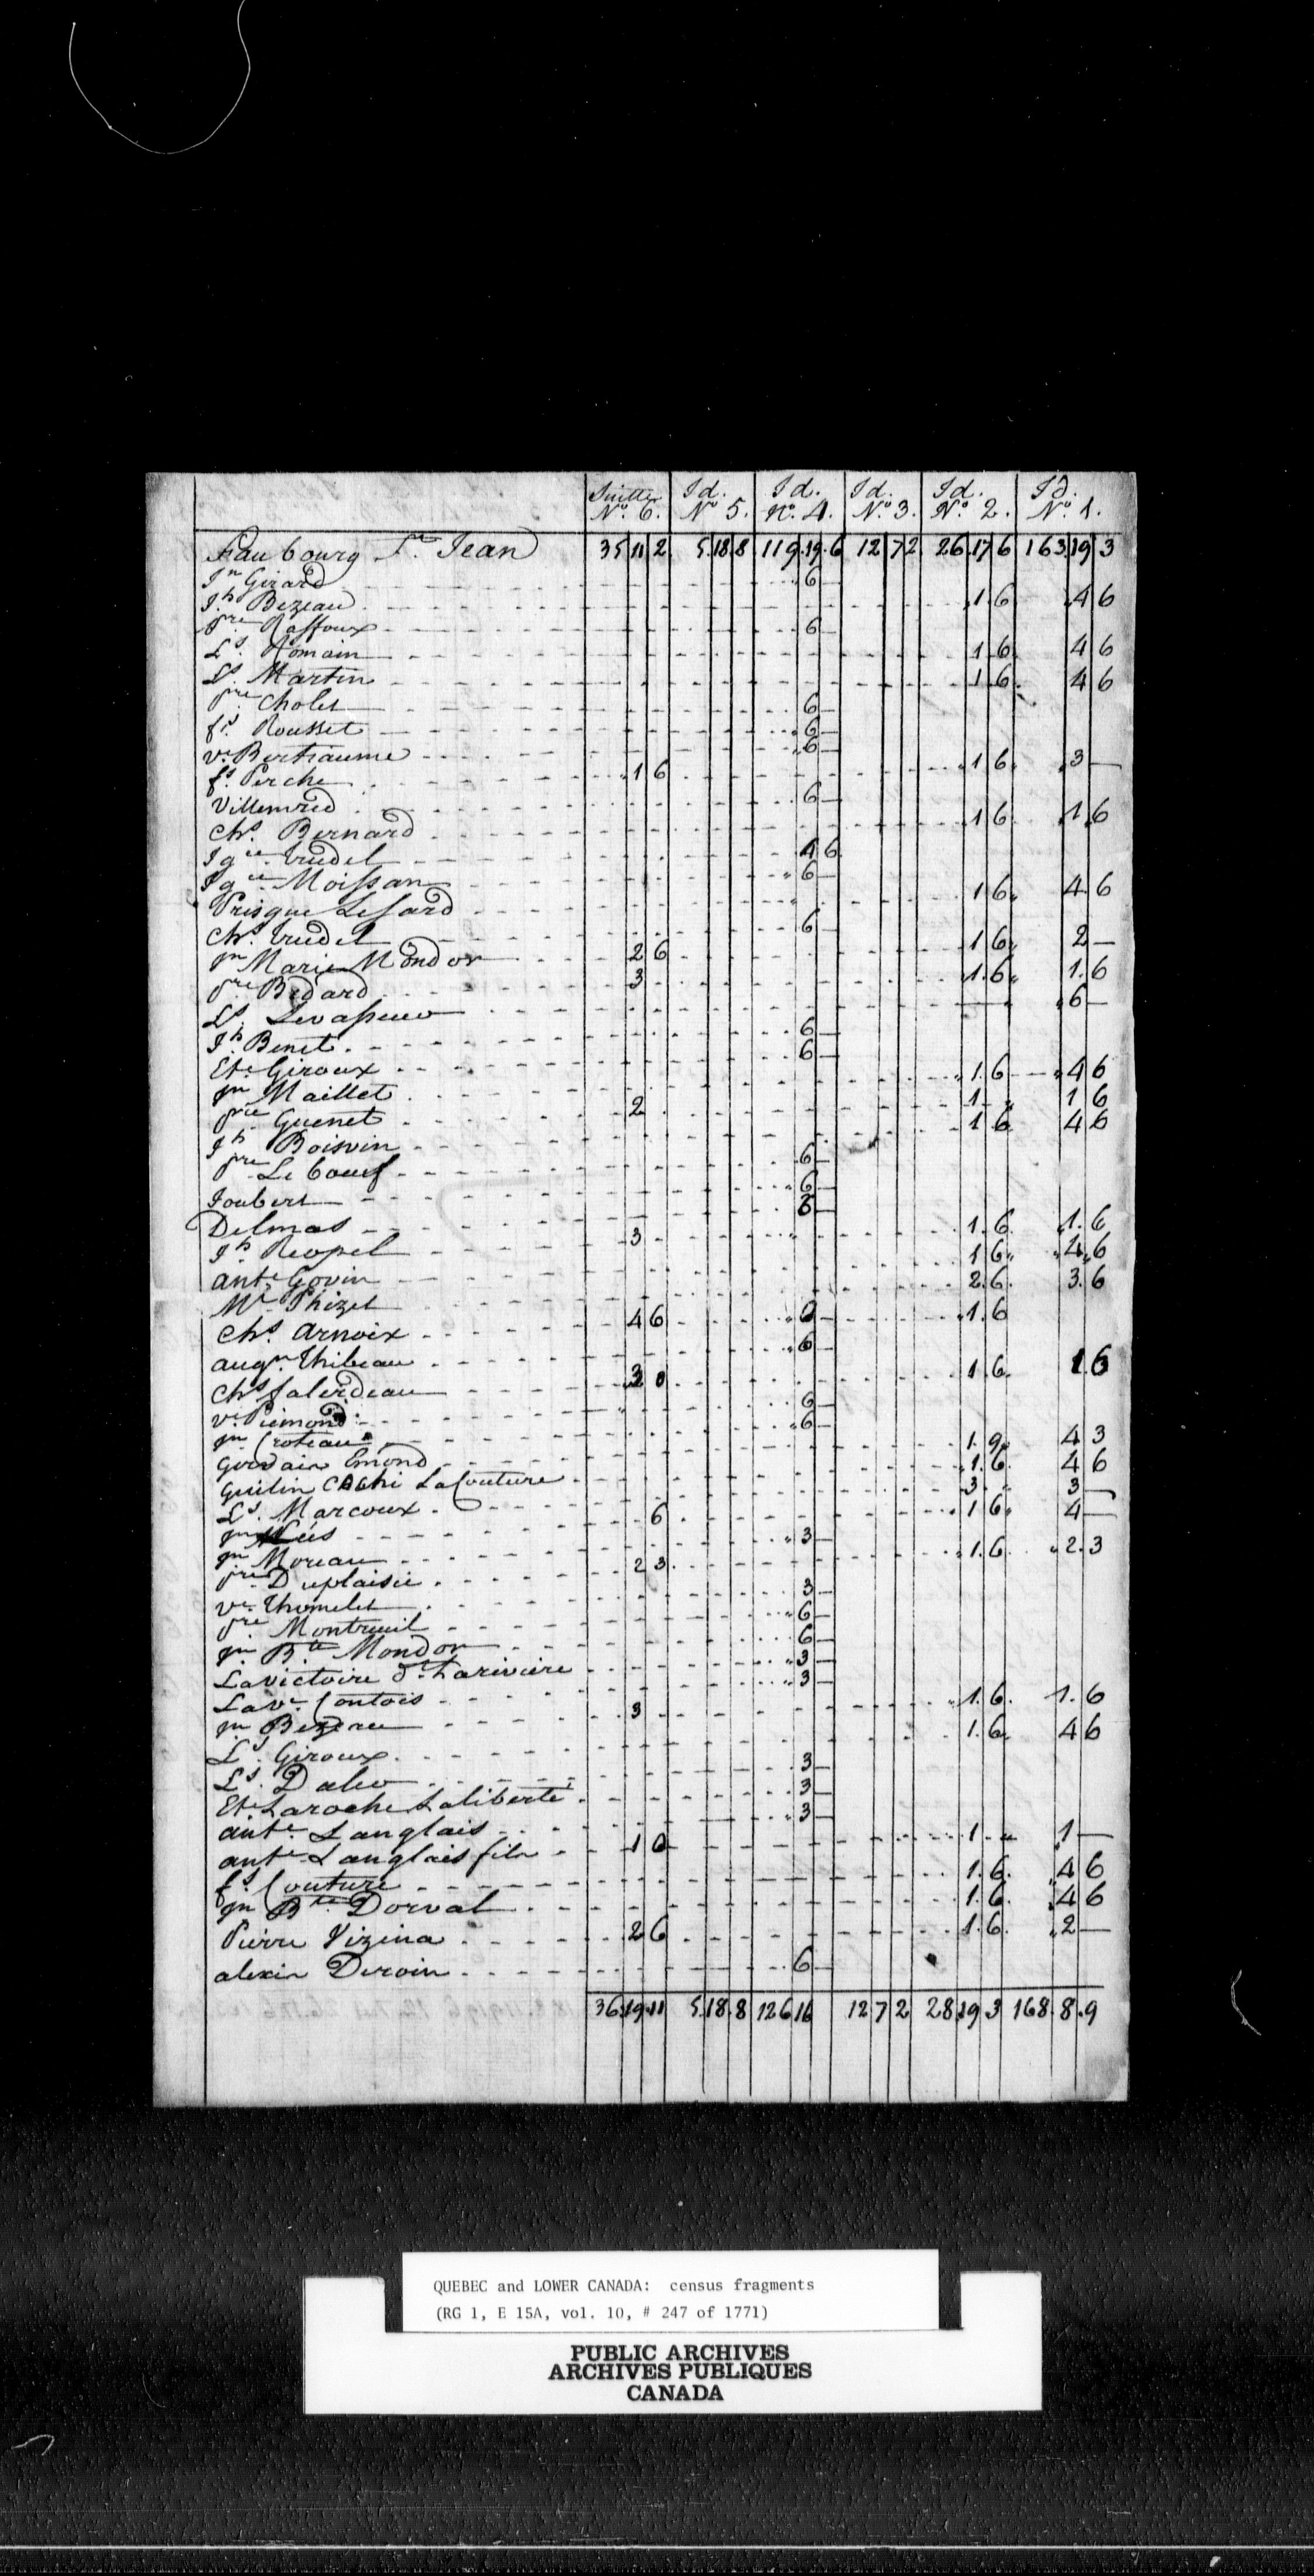 Suitte Id. Id. Id. Id. Id.
No. 6. No 5. No. 4. No. 3. No. 2. No. 1.
Faubourg St. Jean 35 11 2 5.18.8 119.19.6 12 7 2 26.17 6 163 19 3
Jn Girard 6—
Jh. Bezeau 1.6 4 6
Pre 6—
Ls. Romain 1 6 4 6
Ls. Martin 1 6 4 6
Pre Cholet 6—
fs. Rousset 6—
ve. Bertiaume 6—
fs. Perche 1 6 1 6 3—
6—
Chs. Bernard 1 6 1.6
Igce. Trudel 4 6
Igce. Moissan 6—
Prisque Lesard 1 6 4 6
Chs. Trudel 6—
Jn Marie Mondor 2 6 1 6 2—
Pre Bedard 3 1.6 1.6
Ls. Levasseur 6—
Jh. Benet 6—
Ete Giroux 6—
Jn Maillet 1.6 4 6
Pre Guenet 2 1 1 6
Jh Boisvin 1 6 4 6
Pre Le bouef 6—
Joubert 6—
Delmas 6—
Jh. Reopel 3 1.6 1.6
ante Govin 1 6 4.6
Mr 2.6 3.6
Chs. Arnoix 4 6 1.6
augn. Thibeau 6
Chs 1 6 1 6
ve. 6—
Jn Croteau 6—
Gervais Emond 1.9 4 3
LaCouture 1.6 4 6
Ls. Marcoux 3 3—
Jn 6 1 6 4—
Jn Moreau 3—
Pre Duplaisie 2 3 1.6 2.3
ve. Thomelet 3—
Pre Montreuil 6—
Jn Bte Mondor 6—
Lavictoire dt. Lariviere 3—
Lave. Contois 3—
Jn Bezeau 3 1.6 1.6
Ls. Giroux 1.6 4 6
Ls. 3—
Ete Laroche Laliberté 3—
ante. Langlais 3—
ante. Langlais fils 1 1 1—
fs. Couture 1.6 4 6
Jn Bte. Dorval 1.6 4 6
Pierre Vizina 2 6 1.6 2—
alexis Deroin 6—
36.19.11 5.18.8 126 16 12 7 2 28.19 3 168.8.9
QUEBEC and LOWER CANADA: census fragments
(RG 1, E 15A, vol. 10, # 247 of 1771)
PUBLIC ARCHIVES
ARCHIVES PUBLIQUES
CANADA